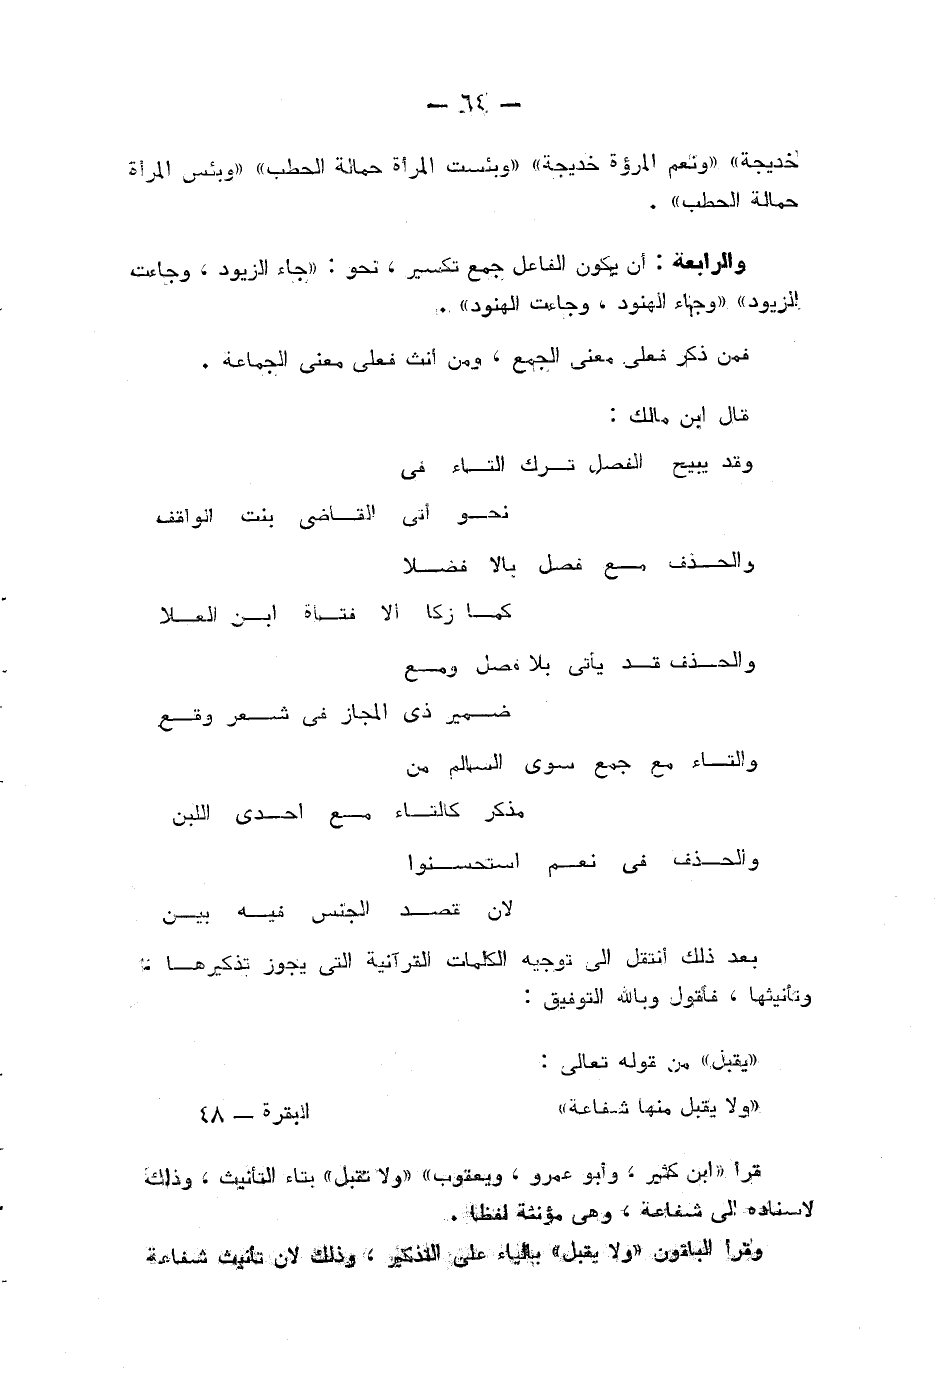 — ٦٤ —
خديجة» «ونعم المرؤة خديجة» «وبئست المرأة حمالة الحطب» «وبئس المرأة
حمالة الحطب» .
والرابعة : أن يكون الفاعل جمع تكسير ، نحو : «جاء الزيود ، وجاءت
الزيود» «وجاء الهنود ، وجاءت الهنود» .
فمن ذكر فعلى معنى الجمع ، ومن أنث فعلى معنى الجماعة .
قال ابن مالك :
وقد يبيح الفصل تــرك التــاء فى
نحــو أتى القــاضى بنت الواقف
والحــذف مــع فصل بالا فضــلا
كمــا زكا الا فتــاة ابــن العــلا
والحــذف قــد يأتى بلا فصل ومــع
ضــمير ذى المجاز فى شــعر وقــع
والتــاء مع جمع سوى السالم من
مذكر كالتــاء مــع احــدى اللبن
والحــذف فى نعــم استحســنوا
لان قصــد الجنس فيــه بيــن
بعد ذلك أنتقل الى توجيه الكلمات القرآنية التى يجوز تذكيرهــا
وتأنيثها ، فأقول وبالله التوفيق :
«يقبل» من قوله تعالى :
«ولا يقبل منها شفاعة» البقرة — ٤٨
قرأ «ابن كثير ، وأبو عمرو ، ويعقوب» «ولا تقبل» بتاء التأنيث ، وذلك
لاسناده الى شفاعة ، وهى مؤنثة لفظا .
وقرأ الباقون «ولا يقبل» بالياء على التذكير ، وذلك لان تأنيث شفاعة